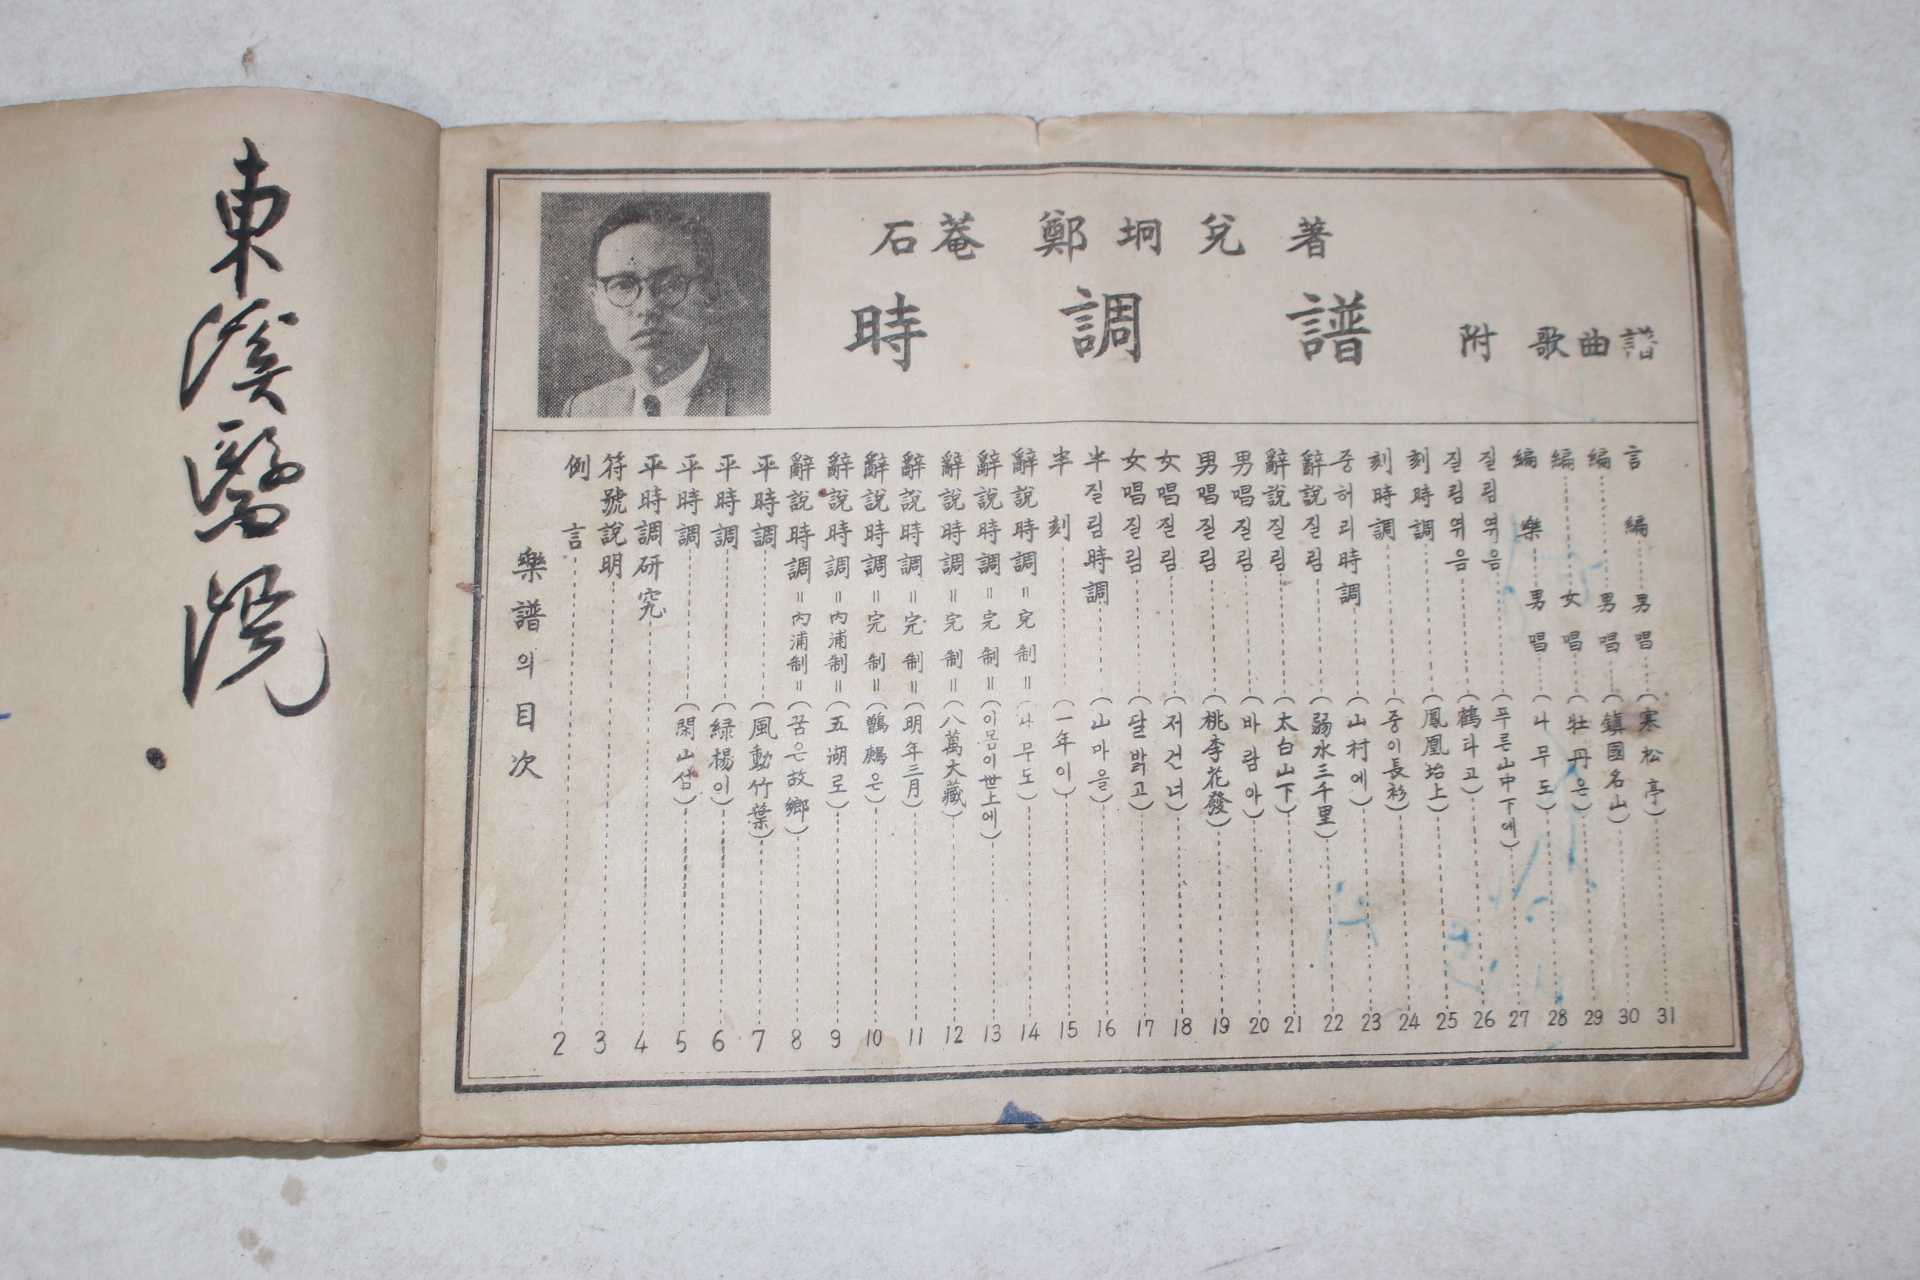 東溪醫院
石菴 鄭坰兌 著
時調譜 附 歌曲譜
樂譜의目次
例言 2
符號說明 3
平時調硏究 4
平時調 (閑山섬) 5
平時調 (綠楊이) 6
平時調 (風動竹葉) 7
辭說時調=內浦制= (꿈은故鄕) 8
辭說時調=內浦制= (五湖로) 9
辭說時調=完制= 10
辭說時調=完制= (明年三月) 11
辭說時調=完制= (八萬大藏) 12
辭說時調=完制= (이몸이世上에) 13
辭說時調=完制= (나무도) 14
半刻 (一年이) 15
半질림時調 (山마을) 16
女唱질림 (달밝고) 17
女唱질림 (저건너) 18
男唱질림 (桃李花發) 19
男唱질림 (바람아) 20
辭說질림 (太白山下) 21
辭說질림 (弱水三千里) 22
중허리時調 (山村에) 23
刻時調 (중이長衫) 24
刻時調 (鳳凰坮上) 25
질림엮음 (鶴타고) 26
질림엮음 (푸른山中下에) 27
編樂 男唱 (나무도) 28
編 女唱 (牡丹은) 29
編 男唱 (鎭國名山) 30
言編 男唱 (寒松亭) 31